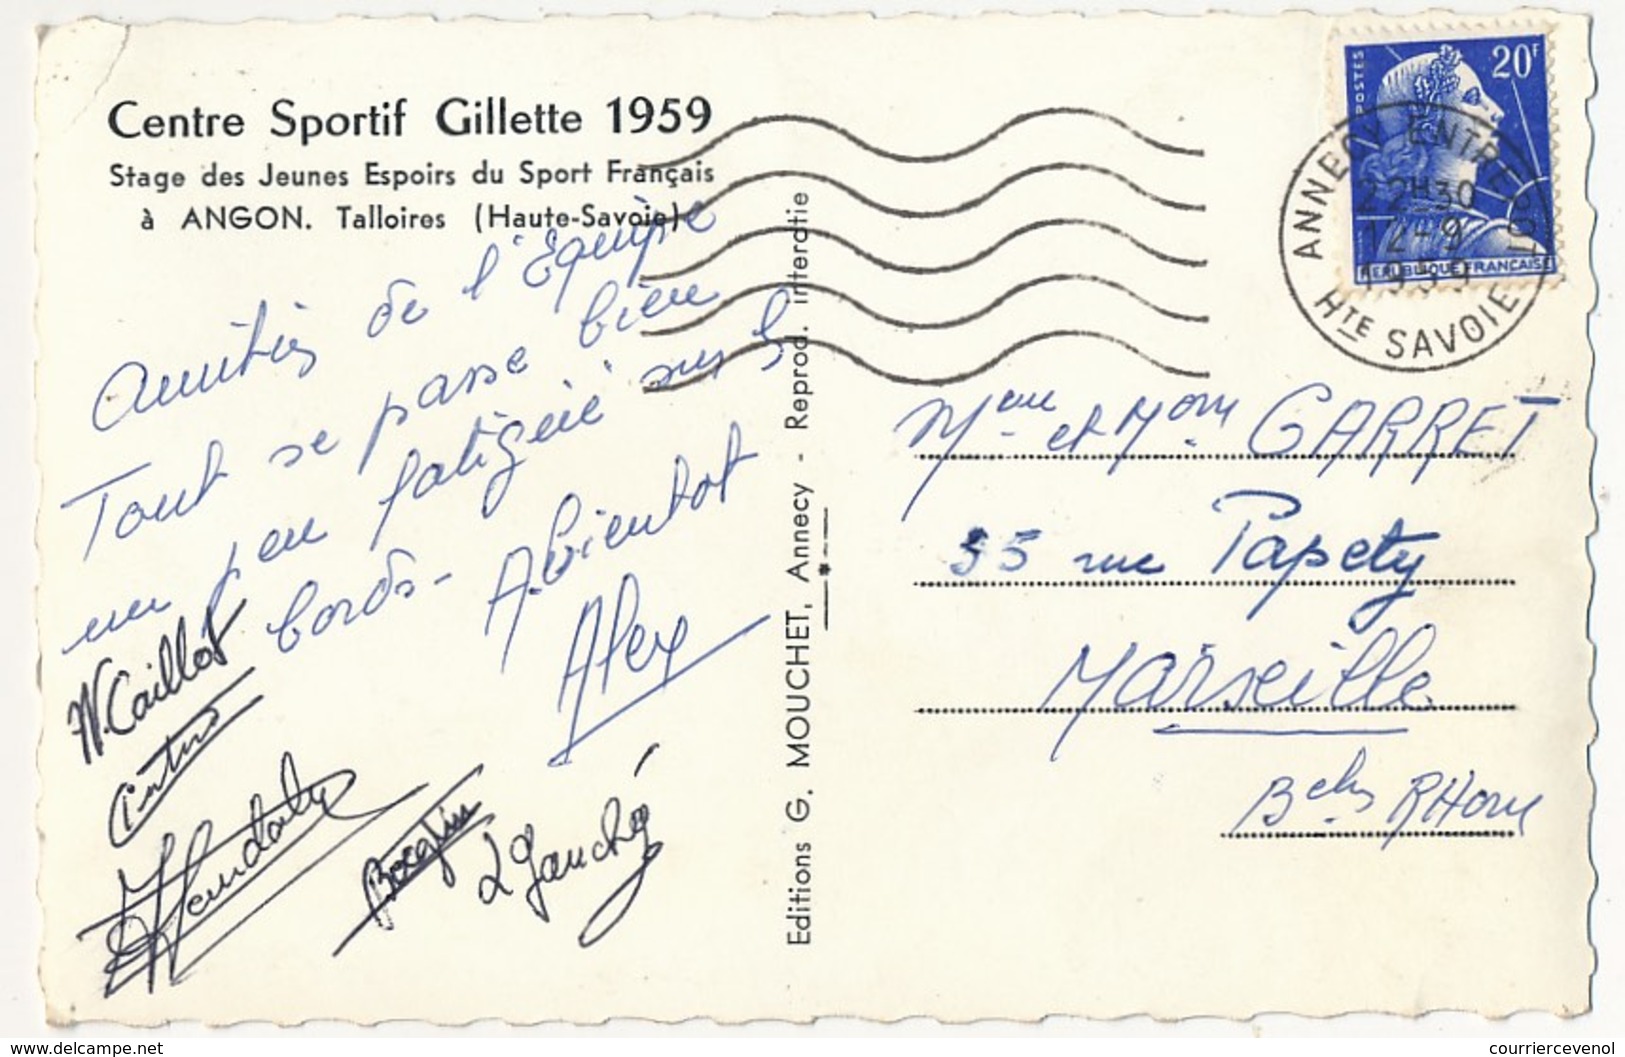 Centre Sportif Gillette 1959
Stage des Jeunes Espoirs du Sport Français
à ANGON. Talloires (Haute-Savoie)
Amitiés de l'Equipe
Tout se passe bien
un peu fatigué sur les
bords - A bientot
Alex
N. Caillot
Gauché
Editions G. MOUCHET, Annecy - Reprod. interdite
20F
POSTES
REPUBLIQUE FRANÇAISE
ANNECY ENTREPOT
22H30
12-9
1959
HTE SAVOIE
Mme et Mons GARRET
35 rue Papety
Marseille
Bches RHone
www.delcampe.net
courriercevenol